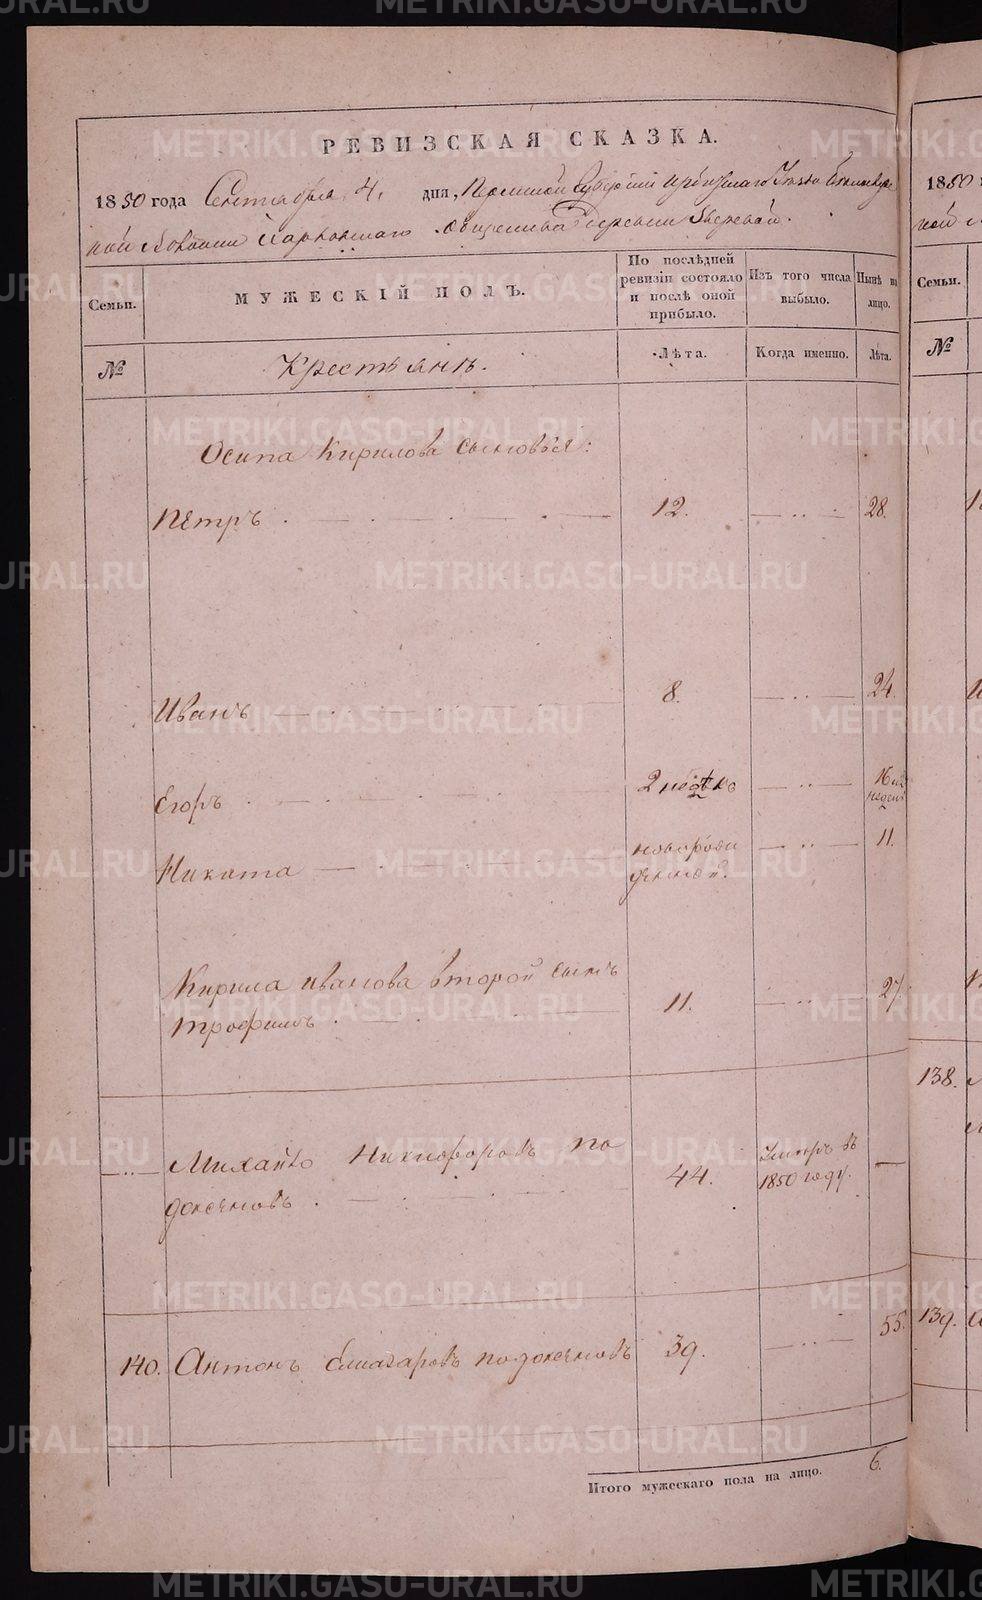 РЕВИЗСКАЯ СКАЗКА.
1850 года Сентября 4. дня, Пермской Губерніи Ирбитскаго Уезда
Харловскаго общества Деревни Зверевай.
Семьи.
МУЖЕСКІЙ ПОЛЪ.
По послѣдней ревизіи состояло и послѣ оной прибыло.
Изъ того числа выбыло.
Нынѣ на лицо.
№
Крестьянъ.
Лѣта.
Когда именно.
Лѣта.
Осипа Кирилова сыновья:
Петръ 12. 28.
Иванъ 8. 24.
Егоръ 2 недѣль 16 недель
Никита новорожденной. 11.
Кирила Иванова второй сынъ
Трофимъ 11. 27
Михайло Никифоровъ по
доксеновъ 44. Умеръ въ 1850 году. —
140. Антонъ Елиазаровъ подоксеновъ 39. 55.
Итого мужескаго пола на лицо. 6.
1850
Семьи.
№
138.
139.
METRIKI.GASO-URAL.RU